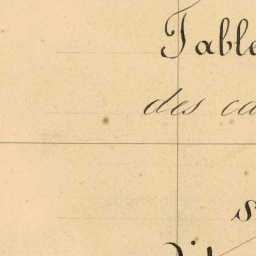 Table
des ca
s